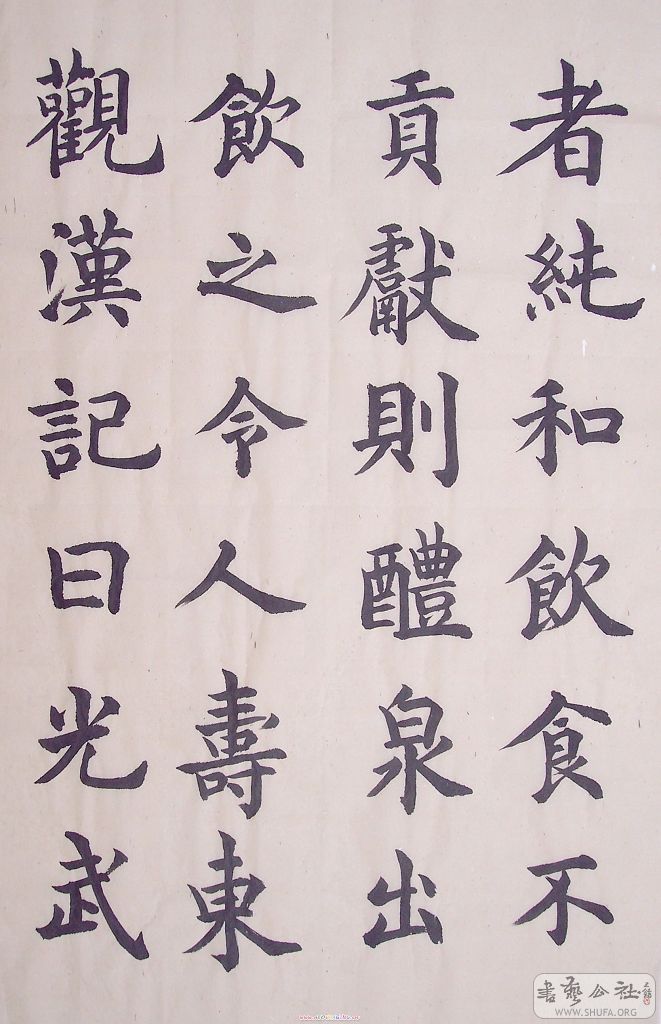 者純和飲食不
貢獻則醴泉出
飲之令人壽東
觀漢記曰光武
書藝公社
WWW.SHUFA.ORG